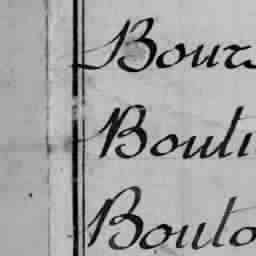 Bours
Bouti
Bouto